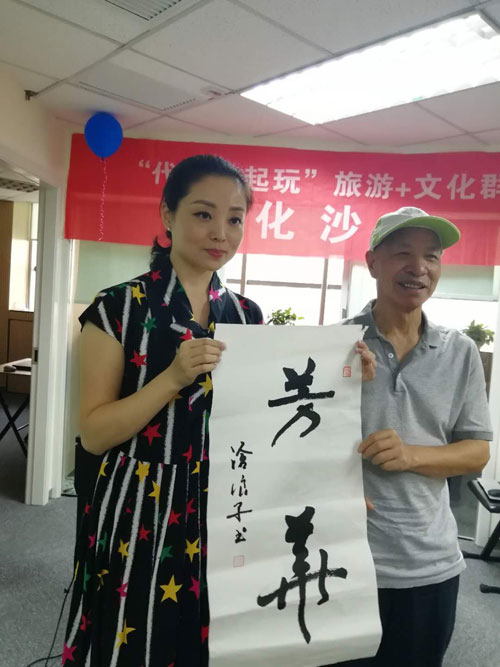 “代 起玩”旅游+文化群
化沙
芳華
滄浪子书